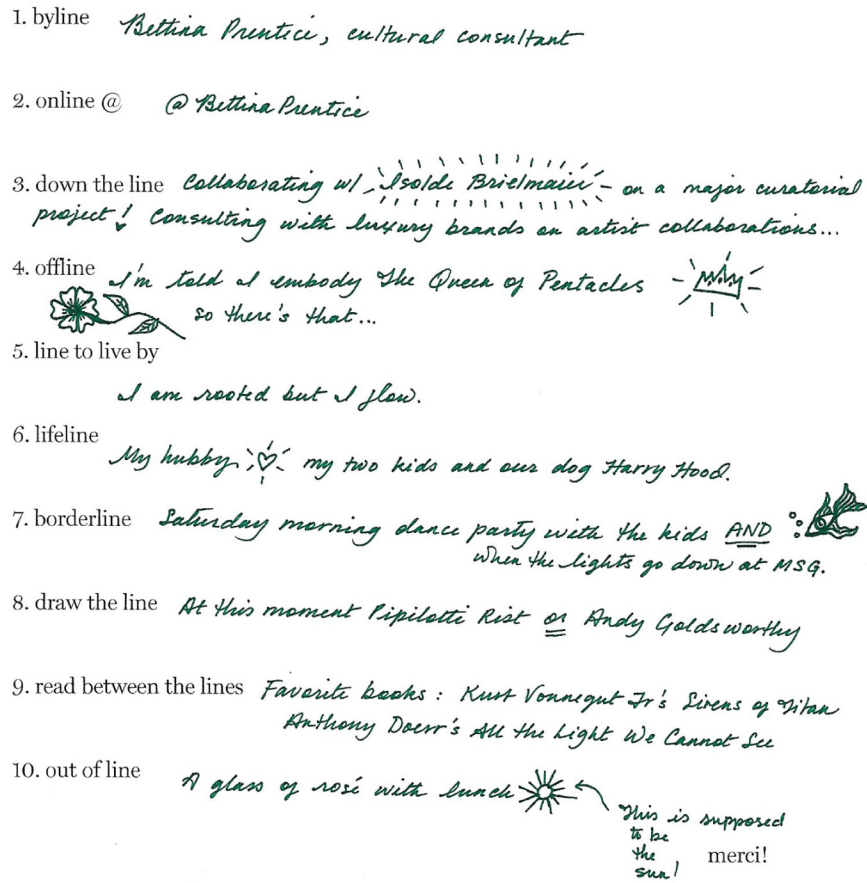 1. byline Bettina Prentice, cultural consultant
2. online @ @BettinaPrentice
3. down the line Collaborating w/ Isolde Brielmaier - on a major curatorial
project! Consulting with luxury brands on artist collaborations...
4. offline I'm told I embody The Queen of Pentacles
so there's that...
5. line to live by
I am rooted but I flow.
6. lifeline
My hubby, my two kids and our dog Harry Hood.
7. borderline Saturday morning dance party with the kids AND
when the lights go down at MSG.
8. draw the line At this moment Pipilotti Rist or Andy Goldsworthy
9. read between the lines Favorite books: Kurt Vonnegut Jr's Sirens of Titan
Anthony Doerr's All the Light We Cannot See
10. out of line A glass of rosé with lunch
This is supposed
to be
the
sun!
merci!